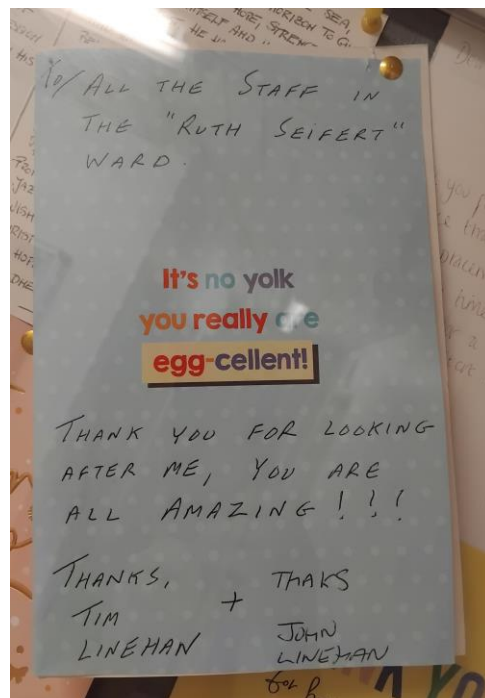 To/ ALL THE STAFF IN
THE "RUTH SEIFERT"
WARD.
It's no yolk
you really are
egg-cellent!
THANK YOU FOR LOOKING
AFTER ME, YOU ARE
ALL AMAZING!!!
THANKS,
TIM
LINEHAN
+
THAKS
JOHN
LINEHAN